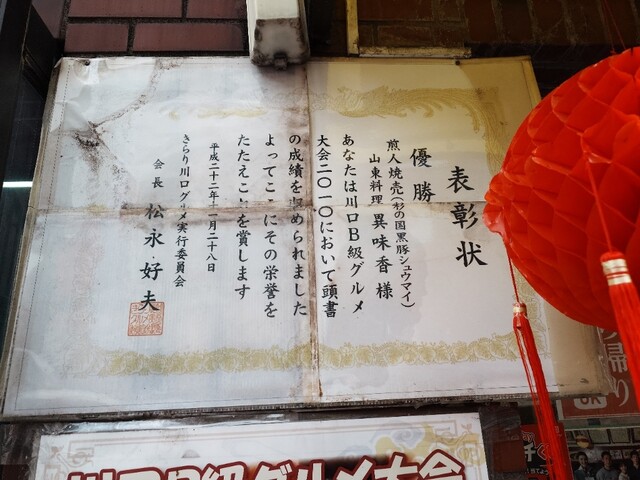 表彰状
優勝
煎人焼売(彩の国黒豚シュウマイ)
山東料理 異味香 様
あなたは川口B級グルメ
大会2010において頭書
の成績を収められました
よってここにその栄誉を
たたえこれを賞します
平成二十二年十一月二十八日
きらり川口グルメ実行委員会
会長 松永好夫
川口B級グルメ大会